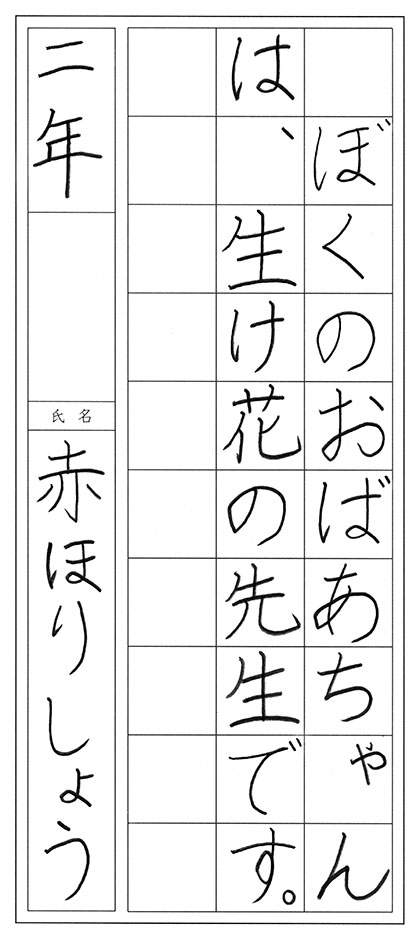 ぼくのおばあちゃん
は、生け花の先生です。
二年
氏名
赤ほりしょう